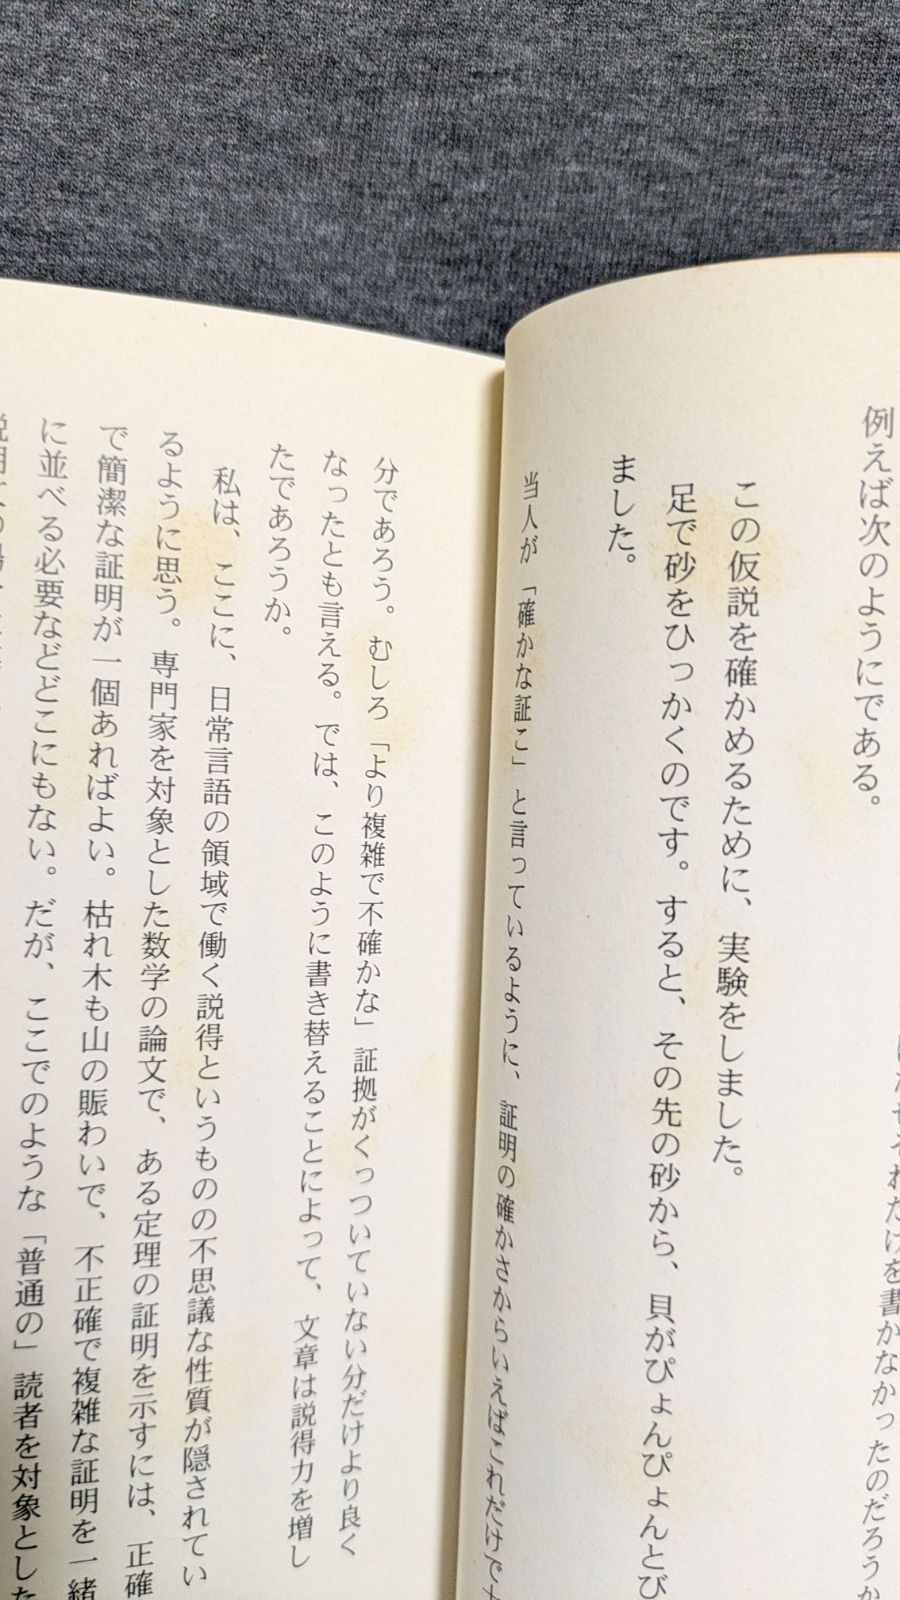 だそれだけを書かなかったのだろうか
例えば次のようにである。
この仮説を確かめるために、実験をしました。
足で砂をひっかくのです。すると、その先の砂から、貝がぴょんぴょんとび
ました。
当人が「確かな証こ」と言っているように、証明の確かさからいえばこれだけで十
分であろう。むしろ「より複雑で不確かな」証拠がくっついていない分だけより良く
なったとも言える。では、このように書き替えることによって、文章は説得力を増し
たであろうか。
私は、ここに、日常言語の領域で働く説得というものの不思議な性質が隠されてい
るように思う。専門家を対象とした数学の論文で、ある定理の証明を示すには、正確
で簡潔な証明が一個あればよい。枯れ木も山の賑わいで、不正確で複雑な証明を一緒
に並べる必要などどこにもない。だが、ここでのような「普通の」読者を対象とした